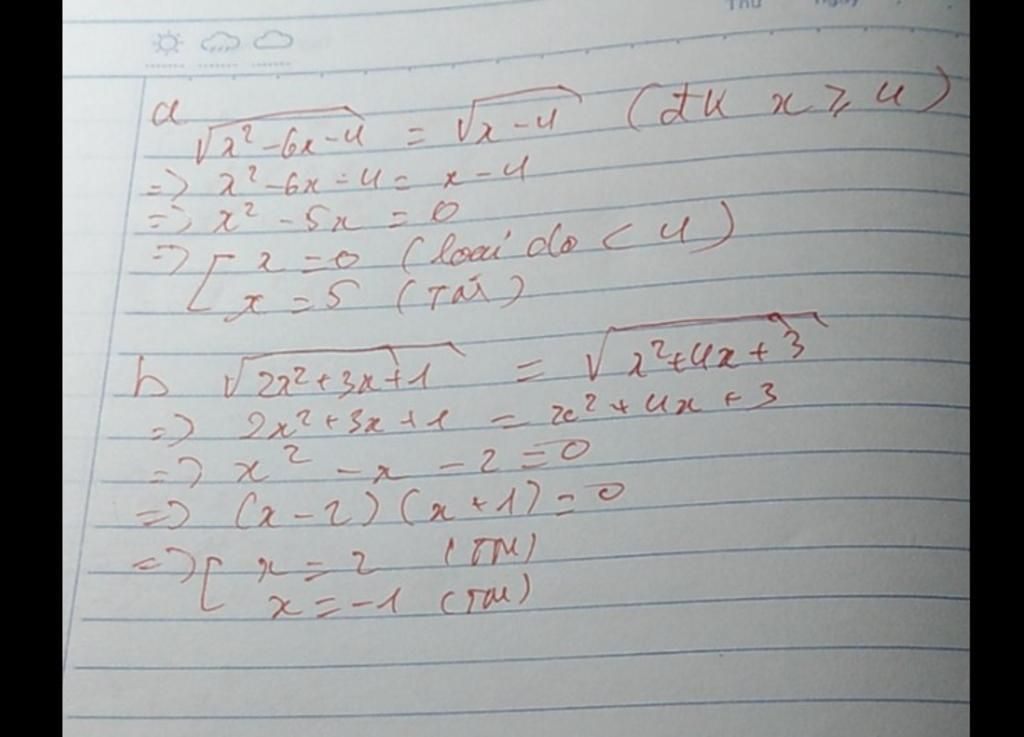 a
√(x² - 6x - 4) = √(x - 4) (đk x ≥ 4)
=> x² - 6x - 4 = x - 4
=> x² - 5x = 0
=> [ x = 0 (loại do < 4)
x = 5 (TM)
b √(2x² + 3x + 1) = √(x² + 4x + 3)
=> 2x² + 3x + 1 = x² + 4x + 3
=> x² - x - 2 = 0
=> (x - 2) (x + 1) = 0
=> [ x = 2 (TM)
x = -1 (TM)